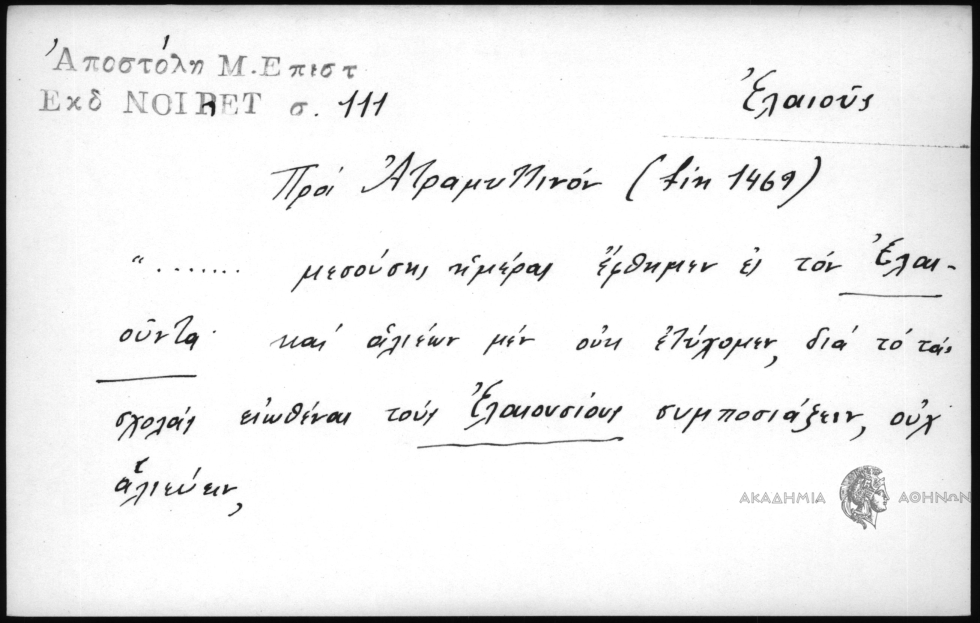 Ἀποστόλη Μ. Επιστ
Εκδ NOIRET σ. 111
Ἐλαιοῦς
Πρὸς Ἀτραμυττινόν (fin 1469)
"....... μεσούσης ἡμέρας ἤρθημεν εἰς τόν Ἐλαι-
οῦντα· καί ἁλιέων μέν οὐκ ἐτύχομεν, διά τό τάς
σχολάς εἰωθέναι τούς Ἐλαιουσίους συμποσιάζειν, οὐχ
ἁλιεύειν,
ΑΚΑΔΗΜΙΑ ΑΘΗΝΩΝ